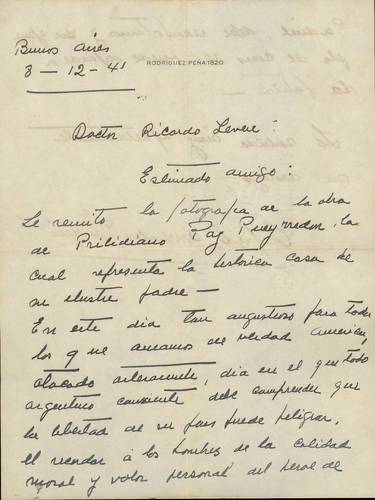 Buenos Aires
RODRIGUEZ PEÑA 1820
8-12-41
Doctor Ricardo Levene:
Estimado amigo:
Le remito la fotografia de la obra
de Prilidiano Paz Pueyrredon, la
cual representa la historica casa de
su ilustre padre —
En este dia tan angustioso para todos
los que amamos de verdad America,
atacada arteramente, dia en el que todo
argentino consciente debe comprender que
la libertad de su pais puede peligrar,
el recordar à los hombres de la calidad
moral y valor personal del heroe de